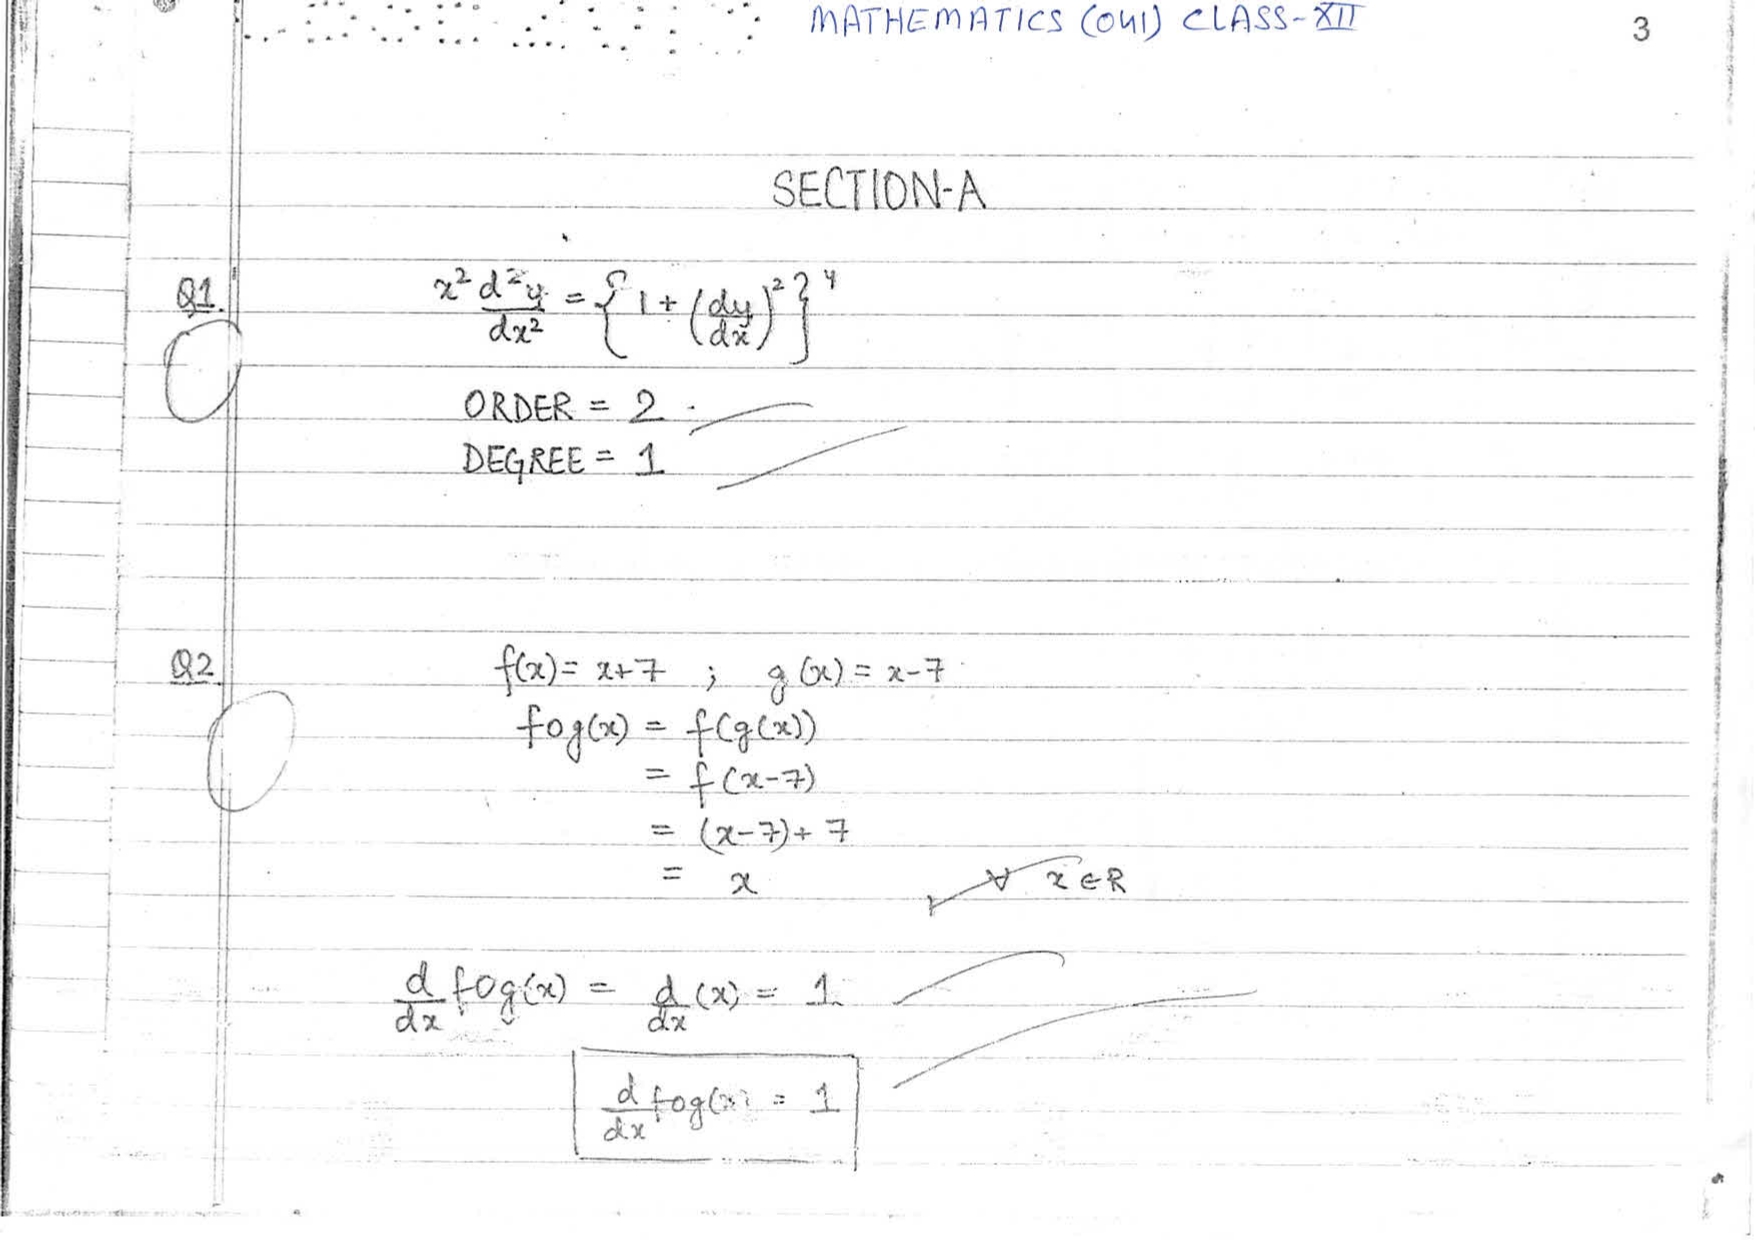 MATHEMATICS (041) CLASS-XII
3
SECTION-A
Q1. x² d²y/dx² = {1 + (dy/dx)²}⁴
ORDER = 2
DEGREE = 1
Q2 f(x) = x+7 ; g(x) = x-7
fog(x) = f(g(x))
= f(x-7)
= (x-7)+7
= x ∀ x∈R
d/dx fog(x) = d/dx (x) = 1
d/dx fog(x) = 1